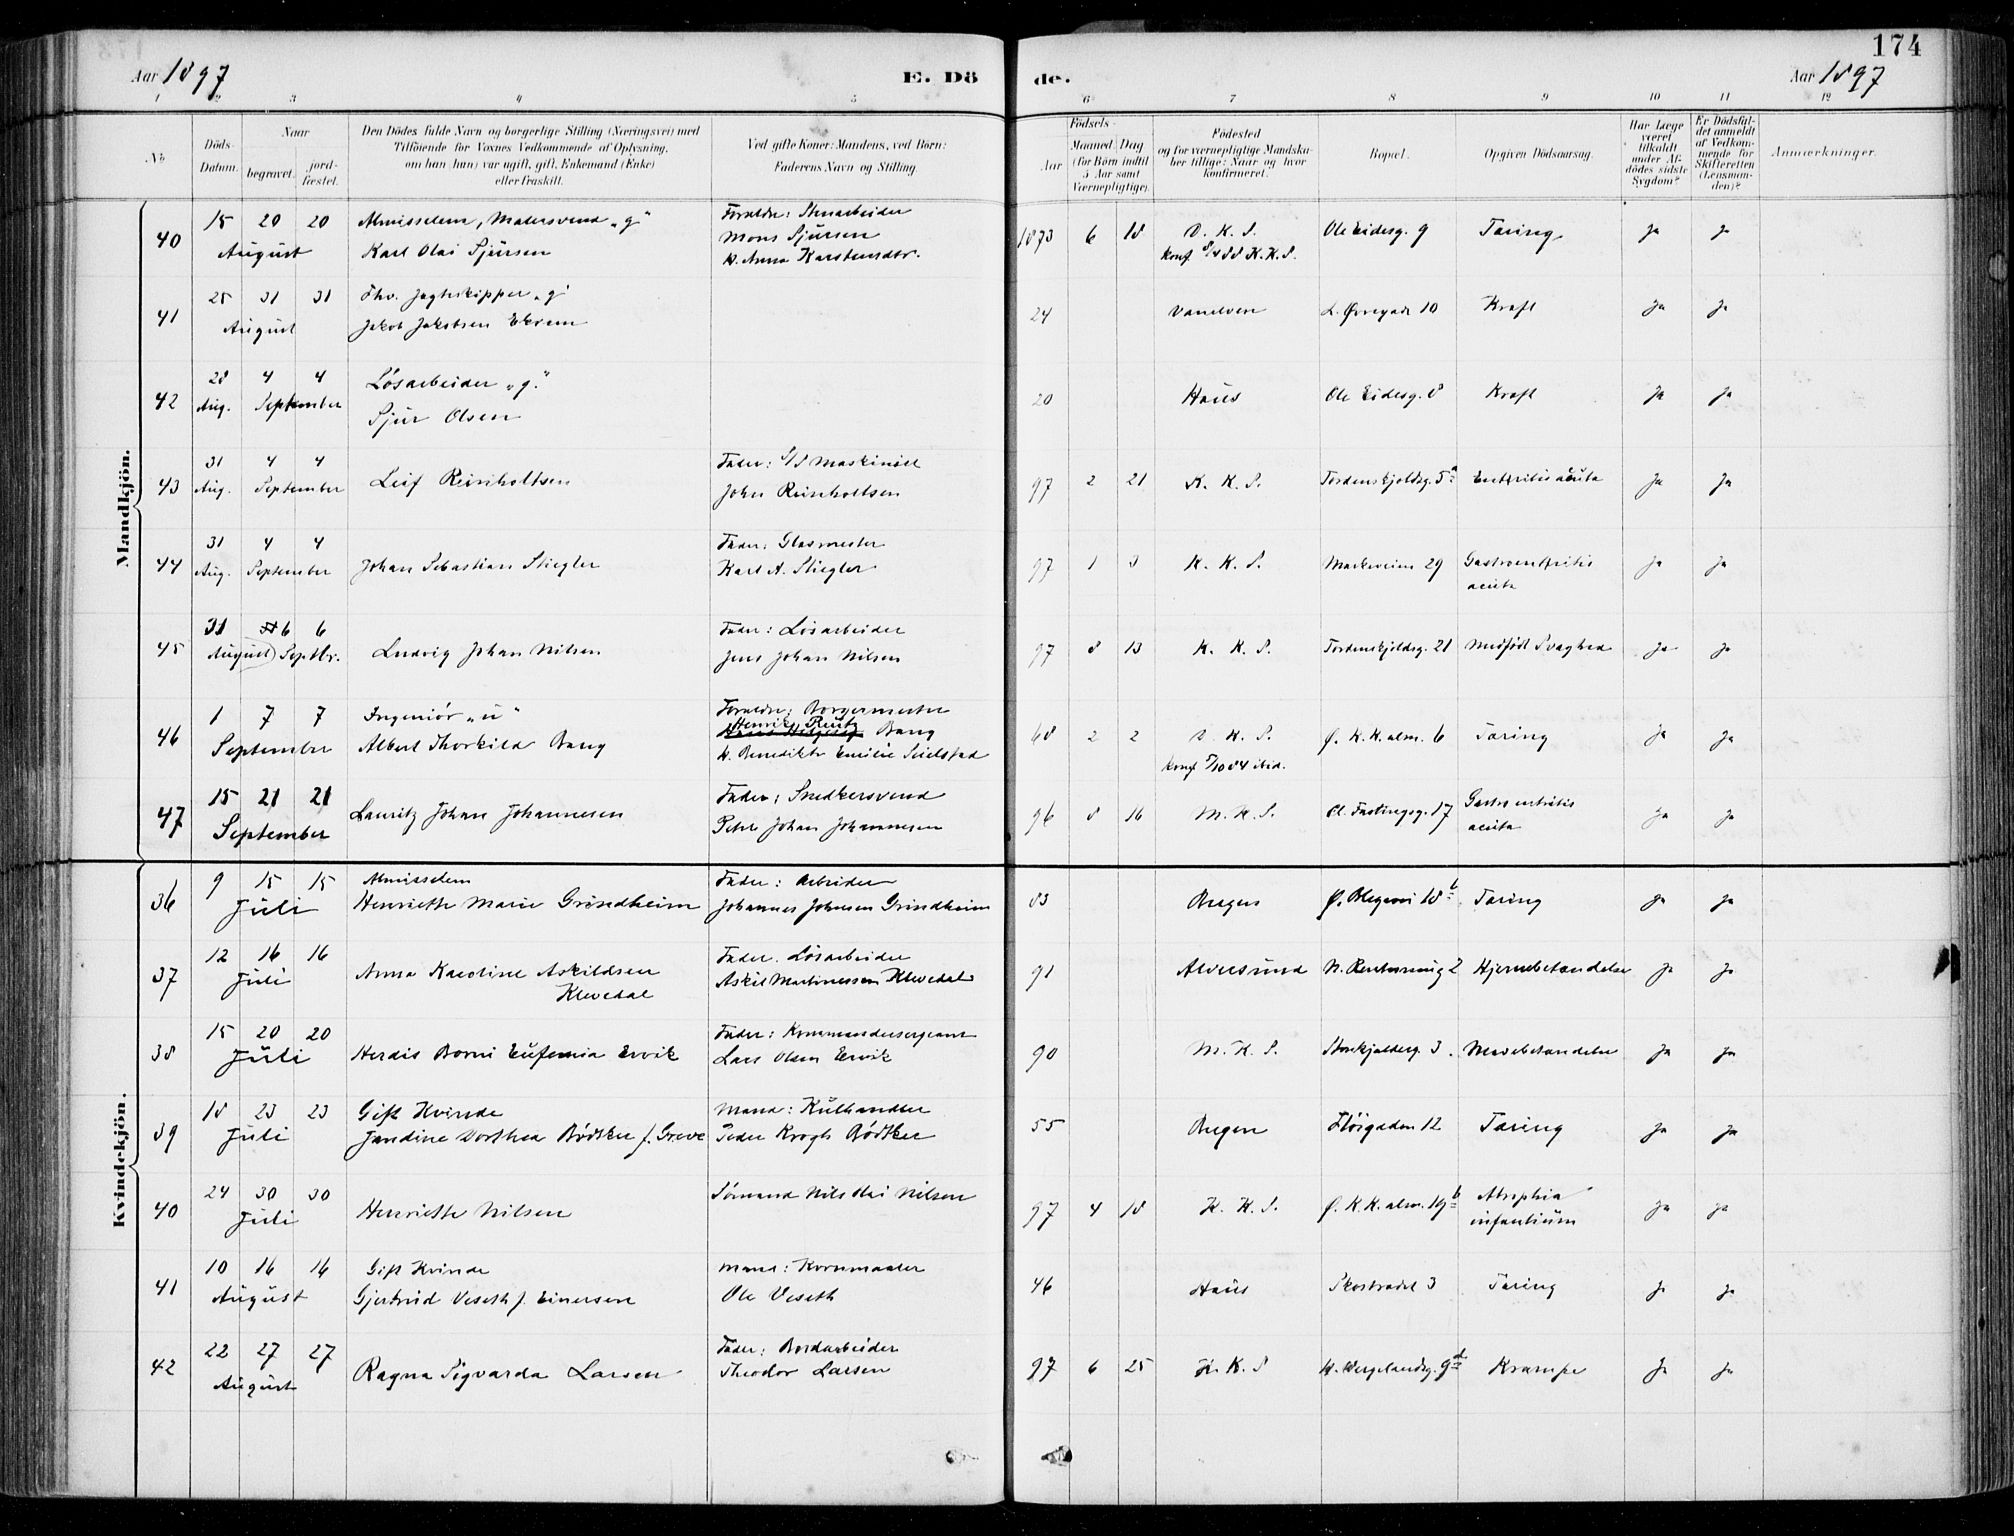 174
Aar 1897 E. Dö de. Aar 1897
1 2 3 4 5 6 7 8 9 10 11 12
No
Döds-Datum.
Naar
begravet.
jord-fæstet.
Den Dödes fulde Navn og borgerlige Stilling (Næringsvei) med
Tilföiende for Voxnes Vedkommende af Oplysning,
om han (hun) var ugift, gift, Enkemand (Enke)
eller fraskilt.
Ved gifte Koner: Mandens, ved Börn:
Faderens Navn og Stilling.
Födsels-
Aar
Maaned. Dag
(for Börn indtil
5 Aar samt
Værnepligtige).
Födested
og for værnepligtige Mandska-
ber tillige: Naar og hvor
konfirmeret.
Bopæl.
Opgiven Dödsaarsag.
Har Læge
været
tilkaldt
under Af-
dödes sidste
Sygdom?
Er Dödsfal-
det anmeldt
af Vedkom-
mende for
Skifteretten
(Lensman-
den)?
Anmærkninger.
Mandkjön.
40 15 20 20 August Almisselem, Malersvend „g“ Karl Olai Sjursen Forældre: Stenarbeider Mons Sjursen h. Anna Karstensdtr. 1873 6 18 D. K. S. konf 8/4 88 K.K.S. Ole Eidesg. 9 Tæring ja ja
41 25 31 31 August Fhv. Jagtskipper „g“ Jakob Jakobsen Ekrem 24 Vanelven L. Øvregade 10 Kræft ja ja
42 28 Aug. 4 4 September Løsarbeider „g.“ Sjur Olsen 20 Haus Ole Eidesg. 8 Kræft ja ja
43 31 Aug. 4 4 September Leif Reinholtsen Fader: S/S Maskinist John Reinholtsen 97 2 21 K. K. S. Tordenskjoldsg. 5a Enteritis acuta ja ja
44 31 Aug. 4 4 September Johan Sebastian Stiegler Fader: Glasmester Karl A. Stiegler 97 1 3 K. K. S. Markeveien 29 Gastroenteritis acuta ja ja
45 31 August 6 6 Septbr. Ludvig Johan Nilsen Fader: Løsarbeider Jens Johan Nilsen 97 8 13 K. K. S. Tordenskjoldsg. 21 Medfødt Svaghed ja ja
46 1 7 7 September Ingeniør „u“ Albert Thorkild Bang Forældre: Borgermester Henrik Reutz Bang h. Benedikte Emilie Seidelstad 68 2 2 D. K. S. konf 5/10 84 ibid. Ø. K.K. alm. 6 Tæring ja ja
47 15 21 21 September Lauritz Johan Johannesen Fader: Snedkersvend Peter Johan Johannesen 96 8 16 M. K. S. Cl. Fastingsg. 17 Gastroenteritis acuta ja ja
Kvindekjön.
36 9 15 15 Juli Almisselem Henriette Marie Grindheim Fader: Arbeider Johannes Johnsen Grindheim 83 Bergen Ø. Blegevei 18b Tæring ja ja
37 12 16 16 Juli Anna Karoline Askildsen Klevedal Fader: Løsarbeider Askil Martinussen Klevedal 91 Alversund N. 2 Hjernebetændelse ja ja
38 15 20 20 Juli Herdis Borni Eufemia Ervik Fader: Kommandersergeant Lars Olsen Ervik 90 M. K. S. 3 Mavebetændelse ja ja
39 18 23 23 Juli Gift Kvinde Jandine Dorthea Bødtker f. Greve Mand: Kulhandler Peder Krogh Bødtker 55 Bergen Fløigaden 12 Tæring ja ja
40 24 30 30 Juli Henriette Nilsen Sømand Nils Olai Nilsen 97 4 18 K. K. S. Ø. K.K. alm. 19b Atrophia infantium ja ja
41 10 16 16 August Gift Kvinde Gjertrud Veseth f. Einersen Mand: Kornmaaler Ole Veseth 46 Haus Skostrædet 3 Tæring ja ja
42 22 27 27 August Ragna Sigvarda Larsen Fader: Bordarbeider Theodor Larsen 97 6 25 K. K. S H. Wergelandsg. 9d Krampe ja ja